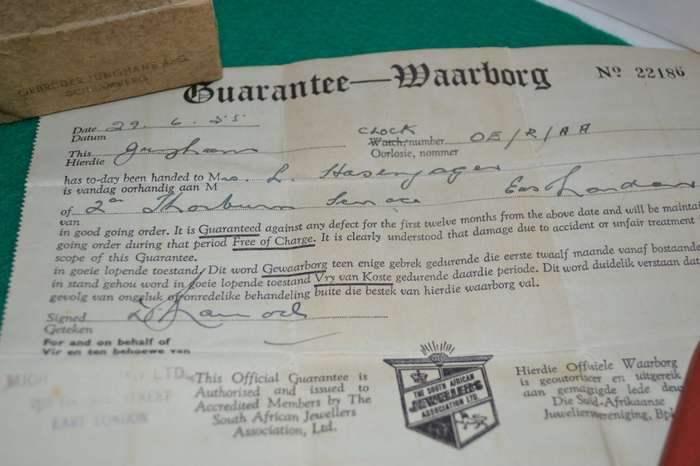 GEBRÜDER JUNGHANS A-G.
SCHRAMBERG
Guarantee—Waarborg
No 22186
Date 29. 6. 55.
Datum
CLOCK
This Junghans Watch, number OE/R/AA
Hierdie Oorlosie, nommer
has to-day been handed to Mrs. L. Hasenjager
is vandag oorhandig aan M
of 2a Thorburn Terrace East London
van
in good going order. It is Guaranteed against any defect for the first twelve months from the above date and will be maintai
going order during that period Free of Charge. It is clearly understood that damage due to accident or unfair treatment
scope of this Guarantee.
in goeie lopende toestand. Dit word Gewaarborg teen enige gebrek gedurende die eerste twaalf maande vanaf bostaande
in stand gehou word in goeie lopende toestand Vry van Koste gedurende daardie periode. Dit word duidelik verstaan dat
gevolg van ongeluk of onredelike behandeling buite die bestek van hierdie waarborg val.
Signed
Geteken
For and on behalf of
Vir en ten behoewe van
LTD.
EAST LONDON
This Official Guarantee is
Authorised and issued to
Accredited Members by The
South African Jewellers
Association, Ltd.
THE SOUTH AFRICAN
JEWELLERS
ASSOCIATION LTD.
Hierdie Offisiele Waarborg
is geoutoriseer en uitgereik
aan gemagtigde lede deur
Die Suid-Afrikaanse
Juweliersvereniging, Bpk